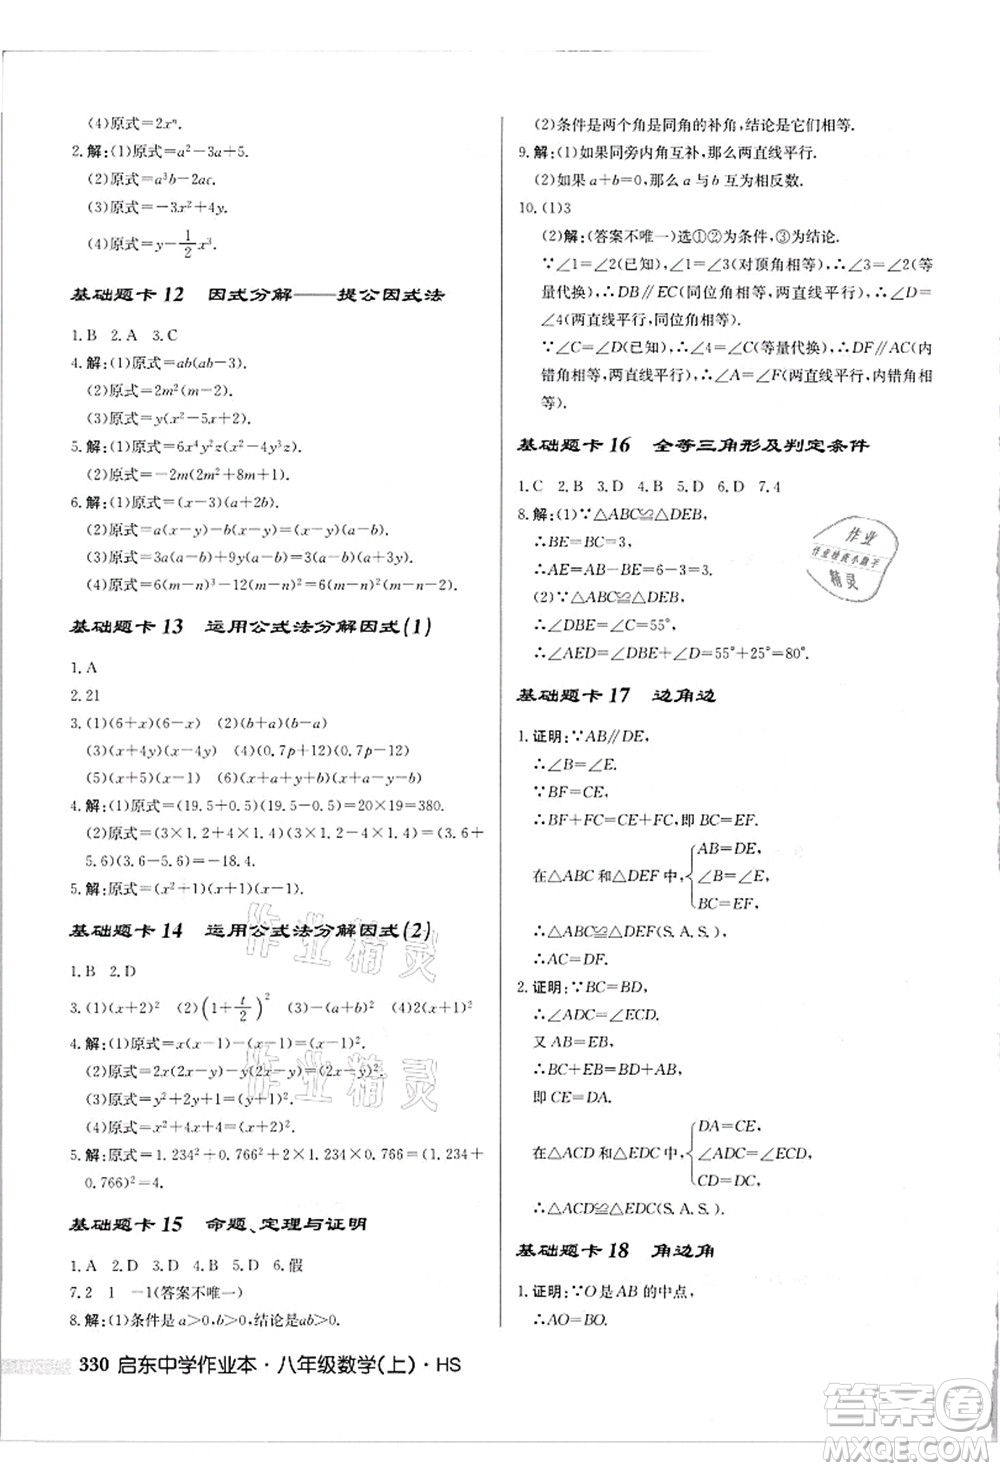 (4)原式=2xⁿ.
2.解:(1)原式=a²-3a+5.
(2)原式=a³b-2ac.
(3)原式=-3x²+4y.
(4)原式=y-1/2x³.
基础题卡12 因式分解——提公因式法
1.B 2.A 3.C
4.解:(1)原式=ab(ab-3).
(2)原式=2m²(m-2).
(3)原式=y(x²-5x+9).
5.解:(1)原式=6x⁴y²z(x²-4y²z).
(2)原式=-2m(m²-8m+13).
6.解:(1)原式=(x-3)(a+2b).
(2)原式=(x-y)-b(x-y)=(x-y)(1-b).
(3)原式=3a(a+3b)+9y(a+3b)=3(a+3b)(a+3y).
(4)原式=6(m-n)³+12(m-n)²=6(m-n)²(m-n+2).
基础题卡13 运用公式法分解因式(1)
1.A
2.21
3.(1)(6+x)(6-x) (2)(b+a)(b-a)
(3)(x+4y)(x-4y) (4)(0.7p+12)(0.7p-12)
(5)(x+3)(x-1) (6)(2a+b+c)(b-c)
4.解:(1)原式=(19.5+0.5)(19.5-0.5)=20×19=380.
(2)原式=(3×1.2+4×1.4)(3×1.2-4×1.4)=(3.6+
5.6)(3.6-5.6)=-18.4.
5.解:原式=(x²+1)(x+1)(x-1).
基础题卡14 运用公式法分解因式(2)
1.B 2.D
3.(1)(x+2)² (2)(1+t/2)² (3)(x-y)² (4)(x-2y)²
4.解:(1)原式=x(x-1)-(x-1)=(x-1)².
(2)原式=2x(2x-y)-y(2x-y)=(2x-y)².
(3)原式=x²+4xy+4y²=(x+2y)².
(4)原式=x²+4x+4=(x+2)².
5.解:原式=1.234²+0.766²+2×1.234×0.766=(1.234+
0.766)²=4.
基础题卡15 命题、定理与证明
1.A 2.B 3.D 4.D 5.D 6.假
7.2 1 -1(答案不唯一)
8.解:(1)条件是a>0,b>0,结论是ab>0.
(2)条件是两个角是同角的补角,结论是它们相等.
9.解:(1)如果同旁内角互补,那么两直线平行.
(2)如果a+b=0,那么a与b互为相反数.
10.(1)3
(2)解:(答案不唯一)选①②为条件,③为结论.
∵∠1=∠2(已知),∠1=∠3(对顶角相等),∴∠3=∠2(等
量代换),∴DB∥EC(同位角相等,两直线平行),∴∠D=
∠4(两直线平行,同位角相等).
∵∠C=∠D,∴∠4=∠C(等量代换),∴DF∥AC(内
错角相等,两直线平行),∴∠A=∠F(两直线平行,内错角相
等).
基础题卡16 全等三角形及判定条件
1.C 2.B 3.D 4.B 5.D 6.D 7.4
8.解:(1)∵△ABC≌△DEB,
∴BE=BC=3,
∴AE=AB-BE=6-3=3.
(2)∵△ABC≌△DEB,
∴∠DBE=∠C=55°,
∴∠AED=∠DBE+∠D=55°+25°=80°.
基础题卡17 边角边
1.证明:∵AB∥DE,
∴∠B=∠E.
∵BF=CE,
∴BF+FC=CE+FC,即BC=EF.
在△ABC和△DEF中,{AB=DE,
∠B=∠E,
BC=EF,
∴△ABC≌△DEF(S.A.S.),
∴AC=DF.
2.证明:∵BC=BD,
∴∠ADC=∠ECD.
又AB=EB,
∴BC+EB=BD+AB,
即CE=DA.
在△ACD和△EDC中,{DA=CE,
∠ADC=∠ECD,
CD=DC,
∴△ACD≌△EDC(S.A.S.).
基础题卡18 角边角
1.证明:∵O是AB的中点,
∴AO=BO.
330 启东中学作业本·八年级数学(上)·HS
作业
作业检查小助手
精灵
作业精灵
作业精灵
答案卷
MXQE.COM